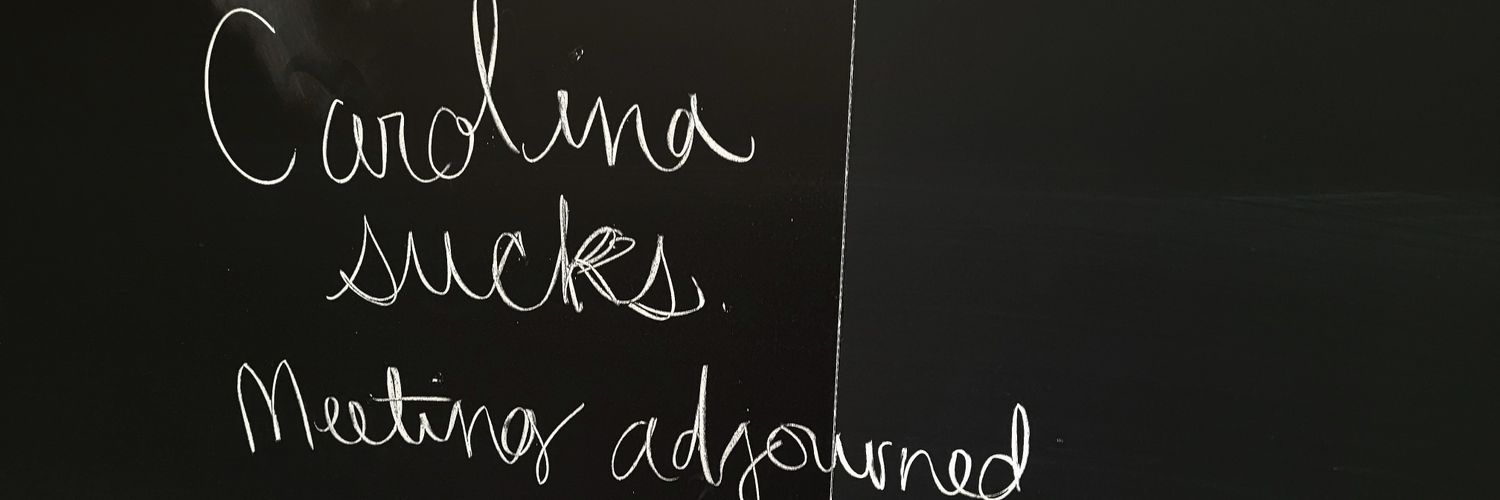 Carolina
sucks.
Meeting adjourned